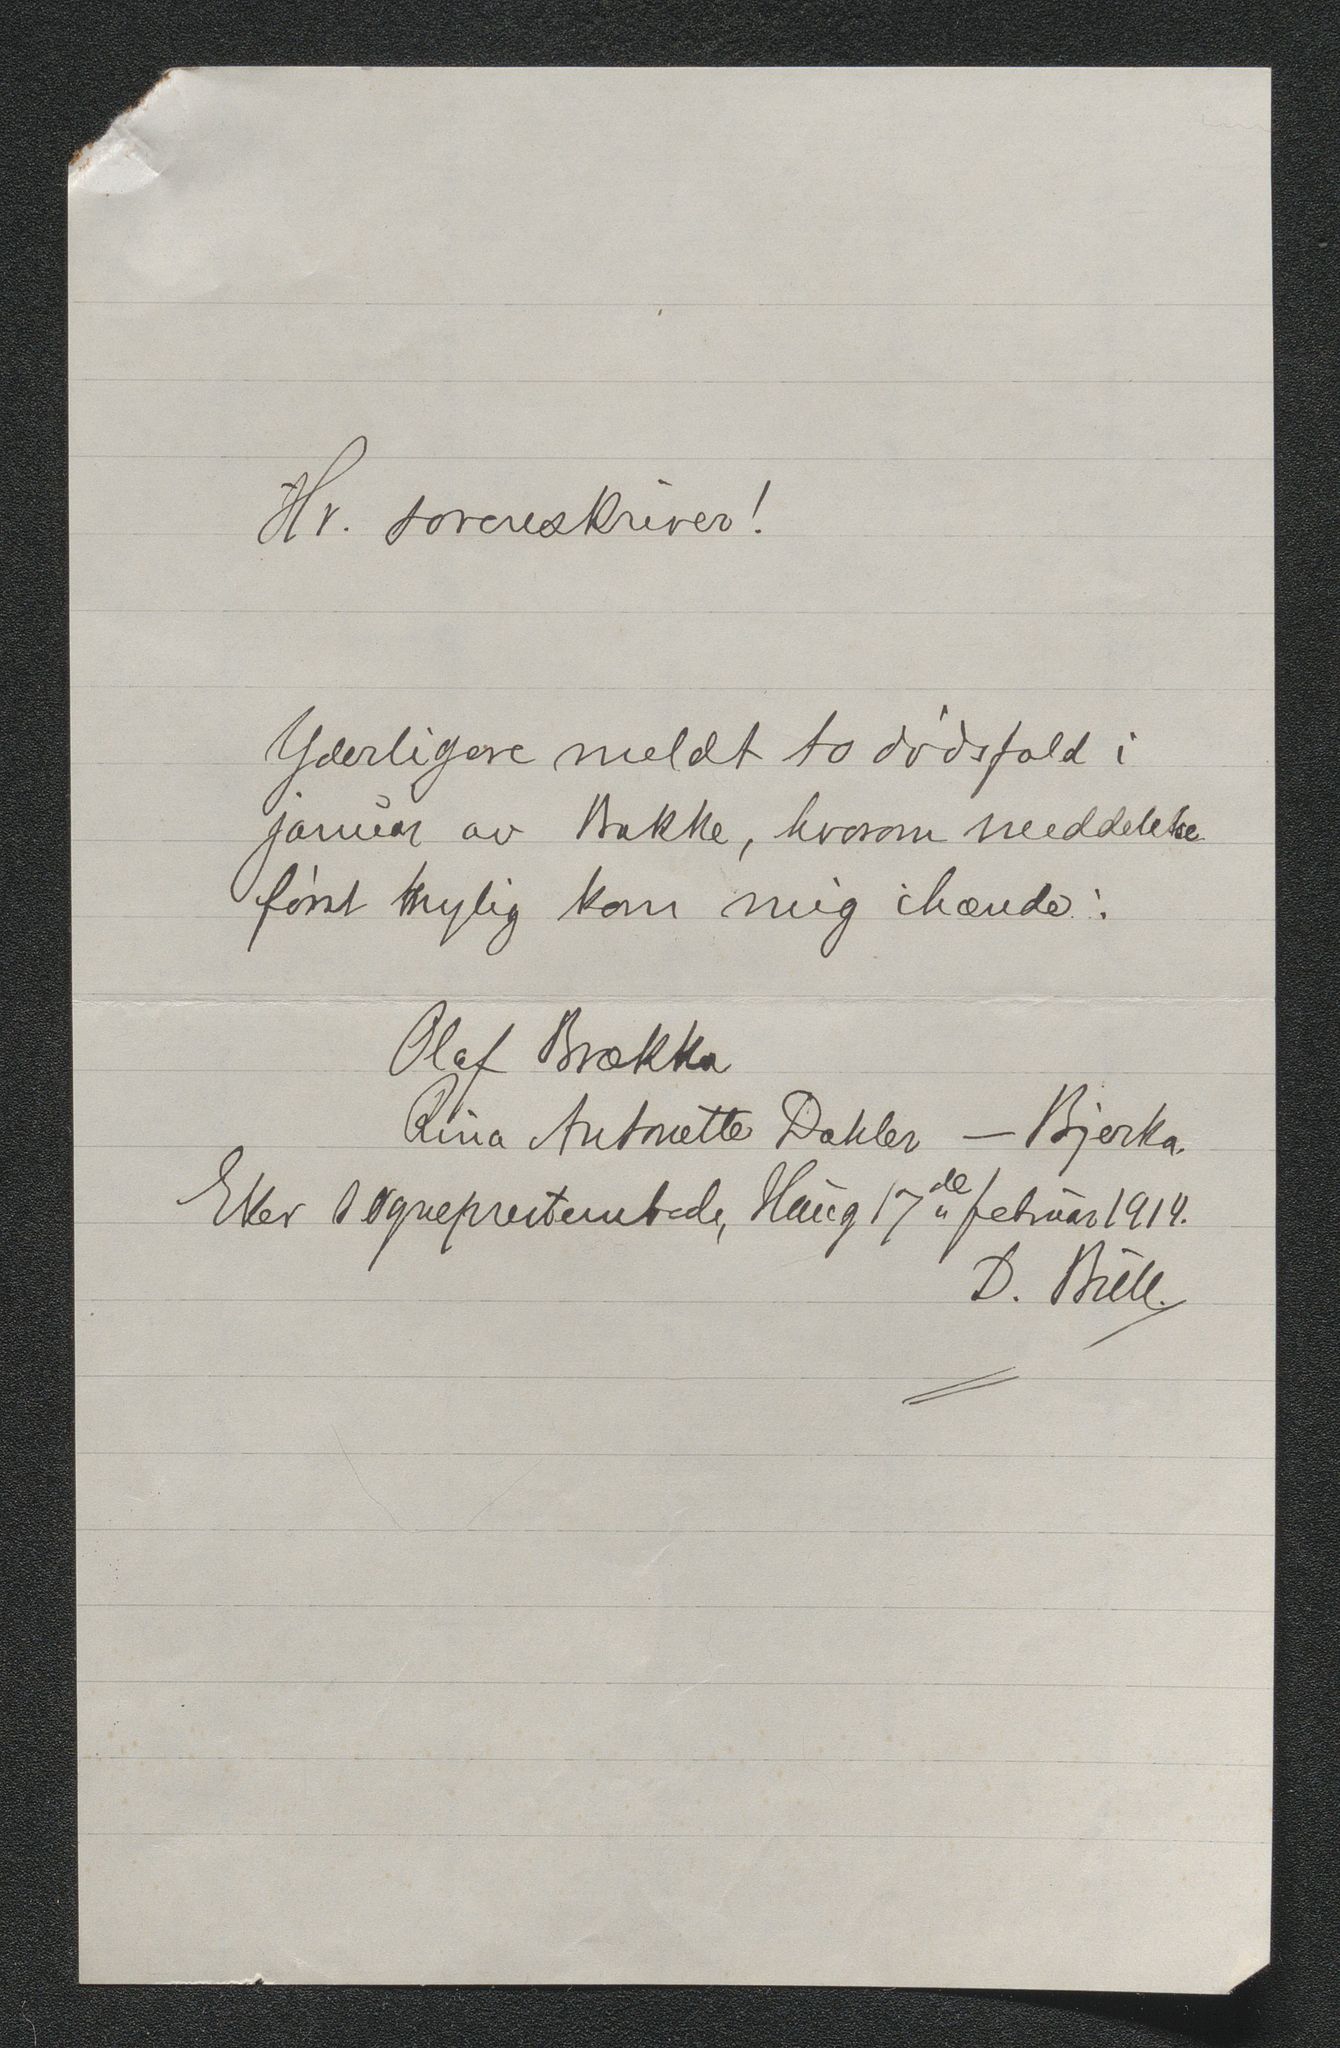 Hr. sorenskriver!
Yderligere meldt to dødsfald i
januar av Bakke, hvorom meddelelse
først nylig kom mig ihænde:
Olaf Brækka
Rina Antonette Dahler — Bjerka.
Eker sogneprestembede, Haug 17de februar 1914.
D. Bull.